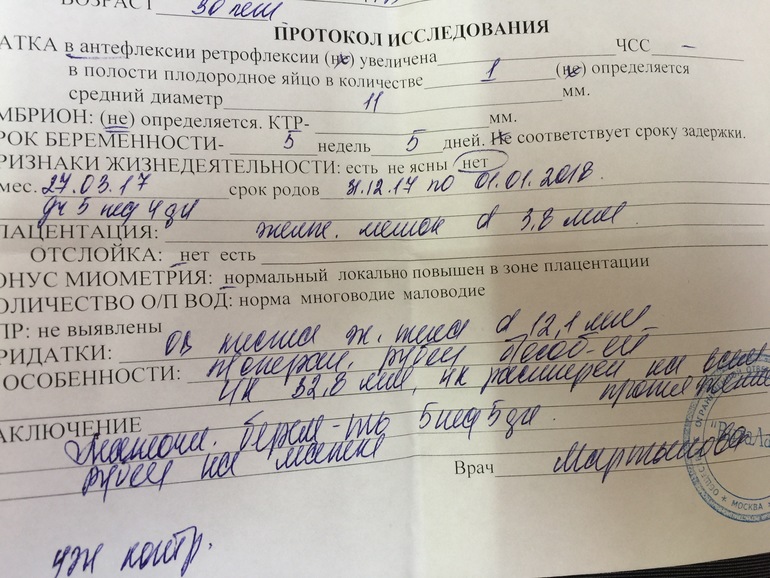 ВОЗРАСТ 30 лет
ПРОТОКОЛ ИССЛЕДОВАНИЯ
АТКА в антефлексии ретрофлексии (не) увеличена ЧСС –
в полости плодородное яйцо в количестве 1 (не) определяется
средний диаметр 11 мм.
МБРИОН: (не) определяется. КТР- мм.
РОК БЕРЕМЕННОСТИ- 5 недель 5 дней. Не соответствует сроку задержки.
РИЗНАКИ ЖИЗНЕДЕЯТЕЛЬНОСТИ: есть не ясны нет
мес. 27.03.17 срок родов 31.12.17 по 01.01.2018
5 нед 4 дн
ЛАЦЕНТАЦИЯ: желт. мешок d 3,8 мм
ОТСЛОЙКА: нет есть
ОНУС МИОМЕТРИЯ: нормальный локально повышен в зоне плацентации
ОЛИЧЕСТВО О/П ВОД: норма многоводие маловодие
ПР: не выявлены
РИДАТКИ: киста ж. тела d 12,1 мм
ОСОБЕННОСТИ: рубец б/особ-ей
цк 32,8 мм, цк расширен на всем протяжении
АКЛЮЧЕНИЕ
Маточн. берем-ть 5 нед 5 дн.
рубец на матке
Врач Мартынова
МОСКВА
узи контр.